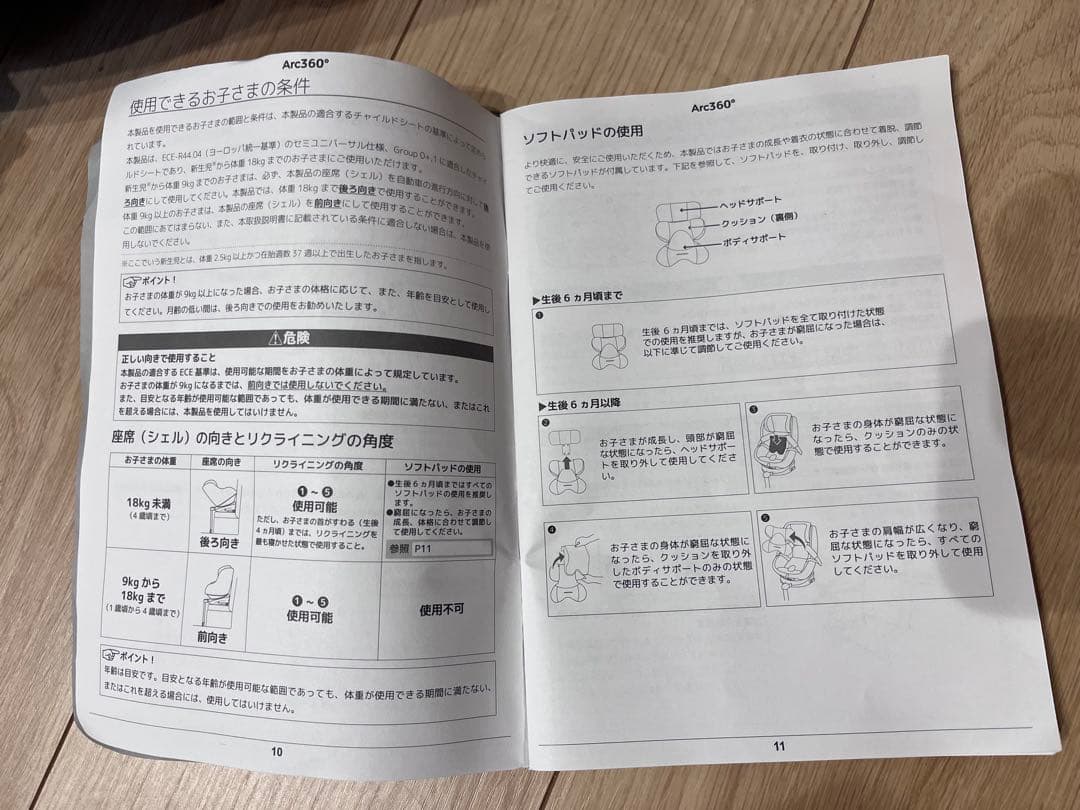 Arc360°
使用できるお子さまの条件
本製品を使用できるお子さまの範囲と条件は、本製品の適合するチャイルドシートの基準によって定め
れています。
本製品は、ECE-R44.04（ヨーロッパ統一基準）のセミユニバーサル仕様、Group 0+,1 に適合したチャイ
ルドシートであり、新生児※から体重 18kg までのお子さまにご使用いただけます。
新生児※から体重 9kg までのお子さまは、必ず、本製品の座席（シェル）を自動車の進行方向に対して後
ろ向きにして使用してください。本製品では、体重 18kg まで後ろ向きで使用することができます。
体重 9kg 以上のお子さまは、本製品の座席（シェル）を前向きにして使用することができます。
この範囲にあてはまらない、また、本取扱説明書に記載されている条件に適合しない場合は、本製品を使
用しないでください。
※ここでいう新生児とは、体重 2.5kg 以上かつ在胎週数 37 週以上で出生したお子さまを指します。
ポイント！
お子さまの体重が 9kg 以上になった場合、お子さまの体格に応じて、また、年齢を目安として使用し
てください。月齢の低い間は、後ろ向きでの使用をお勧めいたします。
危険
正しい向きで使用すること
本製品の適合する ECE 基準は、使用可能な期間をお子さまの体重によって規定しています。
お子さまの体重が 9kg になるまでは、前向きでは使用しないでください。
また、目安となる年齢が使用可能な範囲であっても、体重が使用できる期間に満たない、またはこれ
を超える場合には、本製品を使用してはいけません。
座席（シェル）の向きとリクライニングの角度
お子さまの体重 座席の向き リクライニングの角度 ソフトパッドの使用
18kg 未満
（4 歳頃まで）
後ろ向き
❶～❺
使用可能
ただし、お子さまの首がすわる（生後
4 ヵ月頃）までは、リクライニングを
最も寝かせた状態で使用すること。
●生後 6 ヵ月頃まではすべての
ソフトパッドの使用を推奨し
ます。
●窮屈になったら、お子さまの
成長、体格に合わせて調節し
て使用してください。
参照 P11
9kg から
18kg まで
（1 歳頃から 4 歳頃まで）
前向き
❶～❺
使用可能
使用不可
ポイント！
年齢は目安です。目安となる年齢が使用可能な範囲であっても、体重が使用できる期間に満たない、
またはこれを超える場合には、使用してはいけません。
10
Arc360°
ソフトパッドの使用
より快適に、安全にご使用いただくため、本製品ではお子さまの成長や着衣の状態に合わせて着脱、調節
できるソフトパッドが付属しています。下記を参照して、ソフトパッドを、取り付け、取り外し、調節し
てご使用ください。
ヘッドサポート
クッション（裏側）
ボディサポート
▶生後 6 ヵ月頃まで
❶
生後 6 ヵ月頃までは、ソフトパッドを全て取り付けた状態
での使用を推奨しますが、お子さまが窮屈になった場合は、
以下に準じて調節してご使用ください。
▶生後 6 ヵ月以降
❷
お子さまが成長し、頭部が窮屈
な状態になったら、ヘッドサポー
トを取り外して使用してくださ
い。
❸
お子さまの身体が窮屈な状態に
なったら、クッションのみの状
態で使用することができます。
❹
お子さまの身体が窮屈な状態に
なったら、クッションを取り外
したボディサポートのみの状態
で使用することができます。
❺
お子さまの肩幅が広くなり、窮
屈な状態になったら、すべての
ソフトパッドを取り外して使用
してください。
11